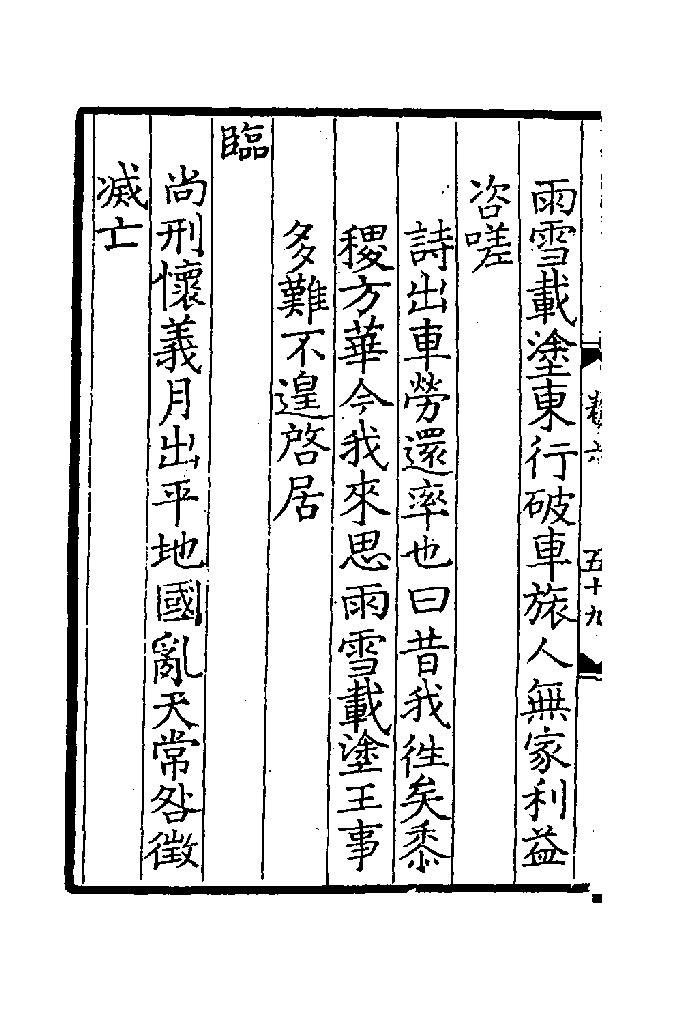 雨雪載塗東行破車旅人無家利益
咨嗟
詩出車勞還率也曰昔我徃矣黍
稷方華今我來思雨雪載塗王事
多難不遑啓居
臨
尚刑懷義月出平地國亂天常咎徴
滅亡
五十九